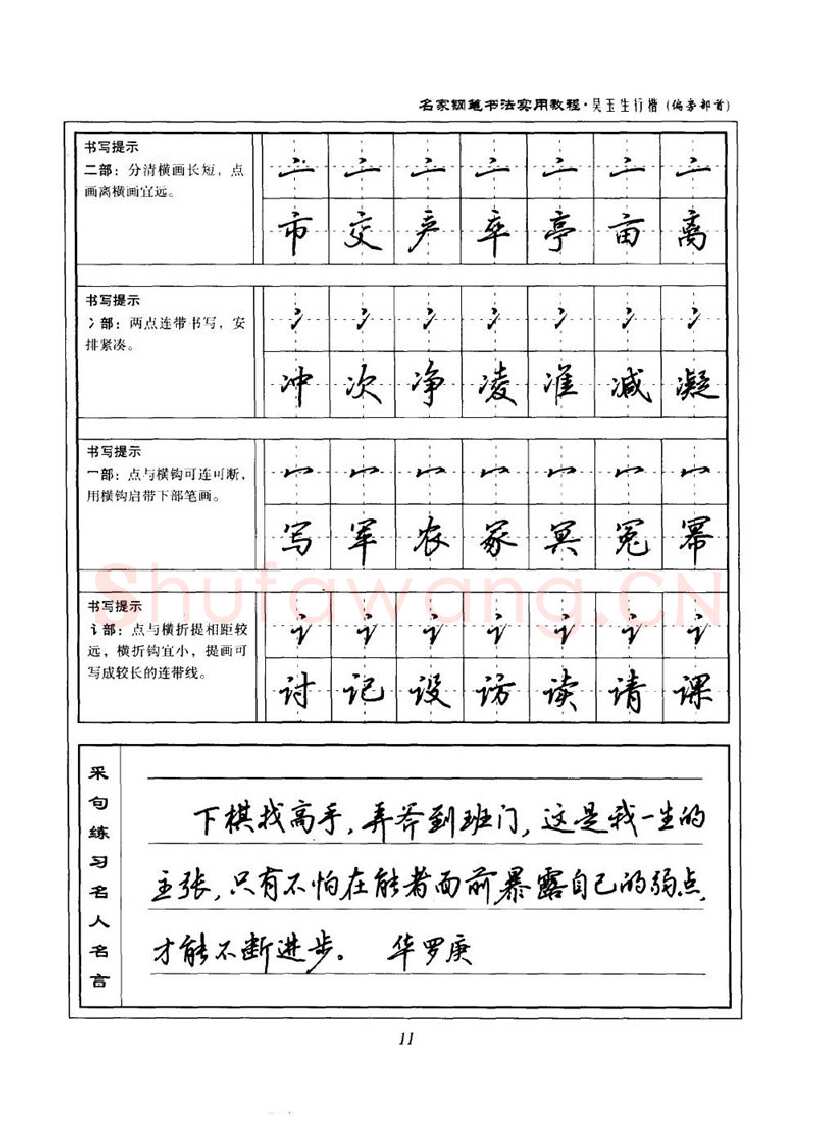 名家钢笔书法实用教程·吴玉生行楷（偏旁部首）
书写提示
亠部：分清横画长短，点
画离横画宜远。
亠 亠 亠 亠 亠 亠 亠
市 交 产 卒 亭 亩 离
书写提示
冫部：两点连带书写，安
排紧凑。
冫 冫 冫 冫 冫 冫 冫
冲 次 净 凌 准 减 凝
书写提示
冖部：点与横钩可连可断，
用横钩启带下部笔画。
冖 冖 冖 冖 冖 冖 冖
写 军 农 冢 冥 冤 幂
Shufawang.CN
书写提示
讠部：点与横折提相距较
远，横折钩宜小，提画可
写成较长的连带线。
讠 讠 讠 讠 讠 讠 讠
讨 记 设 访 读 请 课
采句练习名人名言
下棋找高手，弄斧到班门，这是我一生的
主张，只有不怕在能者面前暴露自己的弱点，
才能不断进步。 华罗庚
11